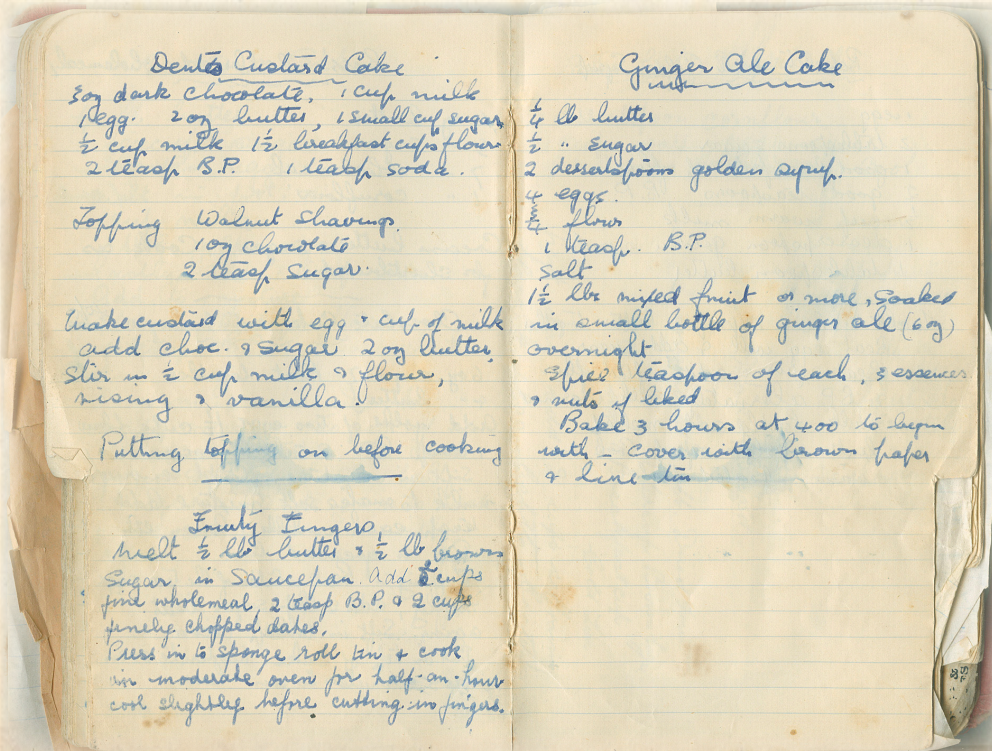 Dents Custard Cake
3oz dark chocolate, 1 cup milk
1 egg. 2 oz butter, 1 small cup sugar,
½ cup milk 1½ breakfast cups flour
2 teasp B.P. 1 teasp soda.
Topping Walnut Shavings.
1 oz chocolate
2 teasp sugar.
Make custard with egg & cup of milk
add choc. & sugar 2 oz butter,
Stir in ½ cup milk & flour,
rising & vanilla.
Putting topping on before cooking
Fruity Fingers
Melt ½ lb butter & ½ lb brown
Sugar in Saucepan. Add cups
fine wholemeal, 2 teasp B.P. & 2 cups
finely chopped dates.
Press in to sponge roll tin & cook
in moderate oven for half-an-hour
cool slightly before cutting in fingers.
Ginger Ale Cake
¼ lb butter
½ " sugar
2 dessertspoons golden syrup.
4 eggs.
¾ flour
1 teasp. B.P.
Salt
1½ lbs mixed fruit or more, soaked
in small bottle of ginger ale (6 oz)
overnight
Spice teaspoon of each, 3 essences
& nuts if liked
Bake 3 hours at 400 to begin
with - cover with brown paper
& line tin